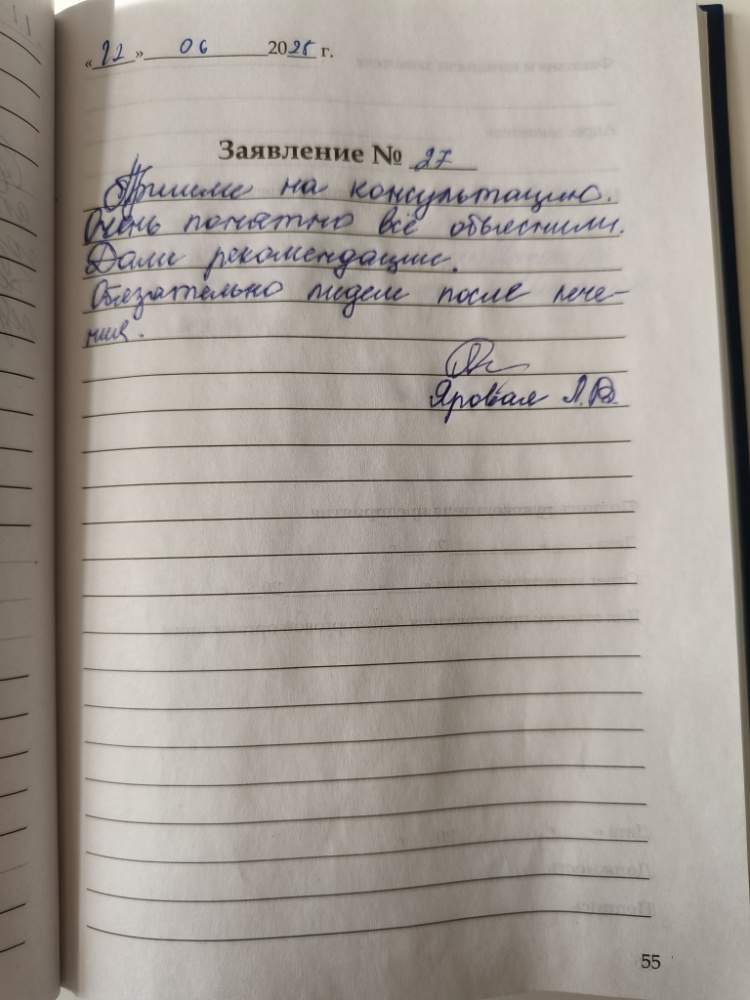 «22» 06 2025 г.
Заявление № 27
Пришли на консультацию.
Очень понятно всё объяснили.
Дали рекомендации.
Обязательно придем после лече-
ния.
Яровая Л.В.
55